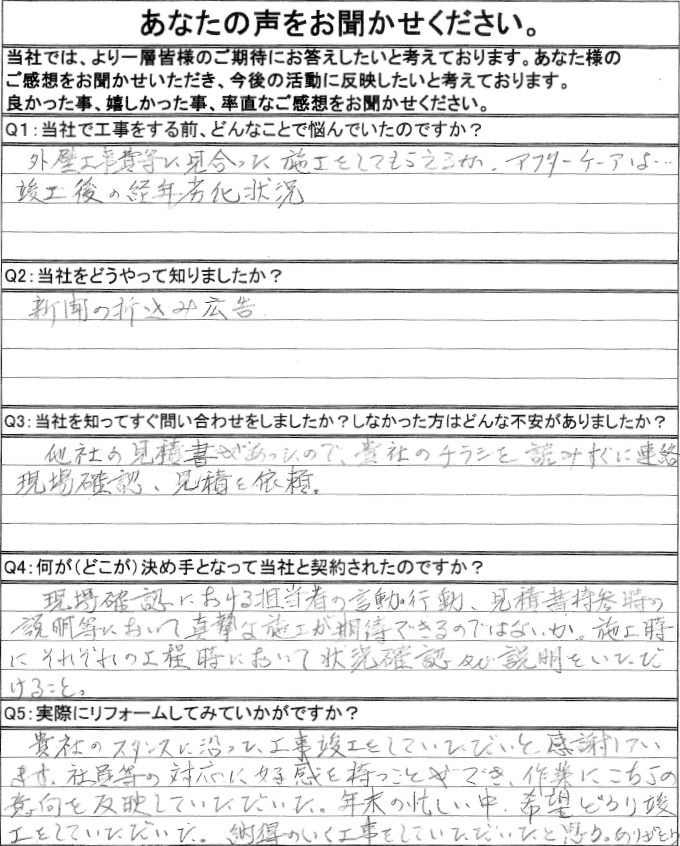 あなたの声をお聞かせください。
当社では、より一層皆様のご期待にお答えしたいと考えております。あなた様の
ご感想をお聞かせいただき、今後の活動に反映したいと考えております。
良かった事、嬉しかった事、率直なご感想をお聞かせください。
Q1:当社で工事をする前、どんなことで悩んでいたのですか?
外壁工事費等に見合った施工をしてもらえるか、アフターケアは…
竣工後の経年劣化状況
Q2:当社をどうやって知りましたか?
新聞の折込み広告
Q3:当社を知ってすぐ問い合わせをしましたか?しなかった方はどんな不安がありましたか?
他社の見積書があったので、貴社のチラシを読みすぐに連絡
現場確認、見積を依頼。
Q4:何が(どこが)決め手となって当社と契約されたのですか?
現場確認における担当者の言動・行動、見積書持参時の
説明等において真摯な施工が期待できるのではないか。施工時
にそれぞれの工程時において状況確認及び説明をいただ
けること。
Q5:実際にリフォームしてみていかがですか?
貴社のスタンスに沿った工事竣工をしていただいたと感謝してい
ます。社員等の対応に好感を持つことができ、作業にこちらの
意向を反映していただいた。年末の忙しい中、希望どおり竣
工をしていただいた。納得のいく工事をしていただいたと思う。ありがとう